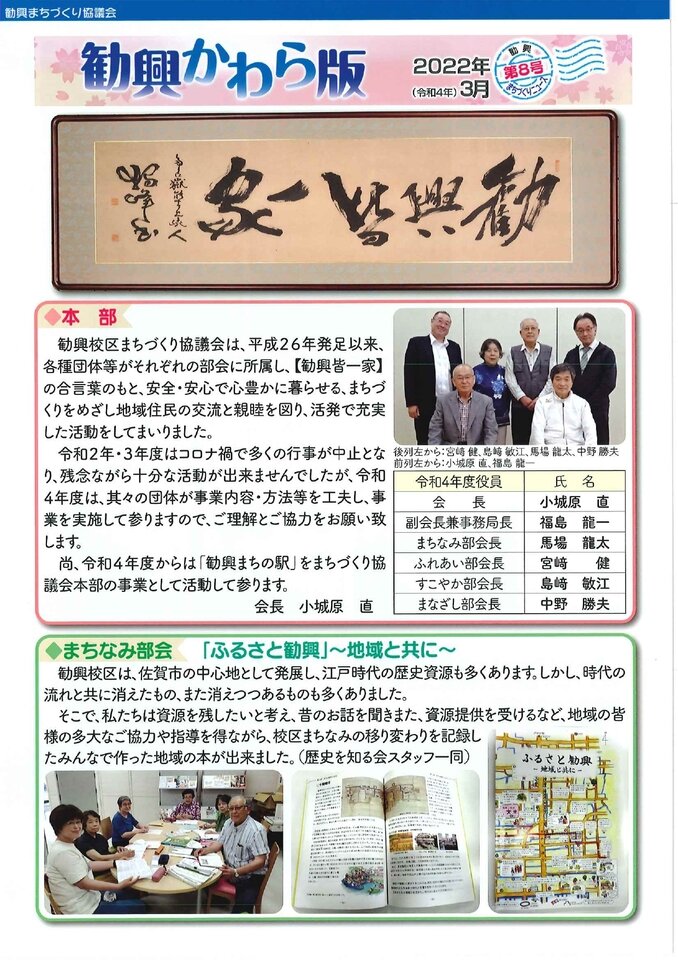 勧興まちづくり協議会
勧興かわら版
2022年
(令和4年) 3月
勧興
第8号
まちづくりニュース
勧興皆一家
◆本 部
勧興校区まちづくり協議会は、平成26年発足以来、
各種団体等がそれぞれの部会に所属し、【勧興皆一家】
の合言葉のもと、安全・安心で心豊かに暮らせる、まちづ
くりをめざし地域住民の交流と親睦を図り、活発で充実
した活動をしてまいりました。
令和2年・3年度はコロナ禍で多くの行事が中止とな
り、残念ながら十分な活動が出来ませんでしたが、令和
4年度は、其々の団体が事業内容・方法等を工夫し、事
業を実施して参りますので、ご理解とご協力をお願い致
します。
尚、令和4年度からは「勧興まちの駅」をまちづくり協
議会本部の事業として活動して参ります。
会長 小城原 直
後列左から:宮﨑 健、島﨑 敏江、馬場 龍太、中野 勝夫
前列左から:小城原 直、福島 龍一
令和4年度役員 氏 名
会 長 小城原 直
副会長兼事務局長 福島 龍一
まちなみ部会長 馬場 龍太
ふれあい部会長 宮﨑 健
すこやか部会長 島﨑 敏江
まなざし部会長 中野 勝夫
◆まちなみ部会 「ふるさと勧興」～地域と共に～
勧興校区は、佐賀市の中心地として発展し、江戸時代の歴史資源も多くあります。しかし、時代の
流れと共に消えたもの、また消えつつあるものも多くありました。
そこで、私たちは資源を残したいと考え、昔のお話を聞きまた、資源提供を受けるなど、地域の皆
様の多大なご協力や指導を得ながら、校区まちなみの移り変わりを記録し
たみんなで作った地域の本が出来ました。(歴史を知る会スタッフ一同)
ふるさと勧興
～地域と共に～